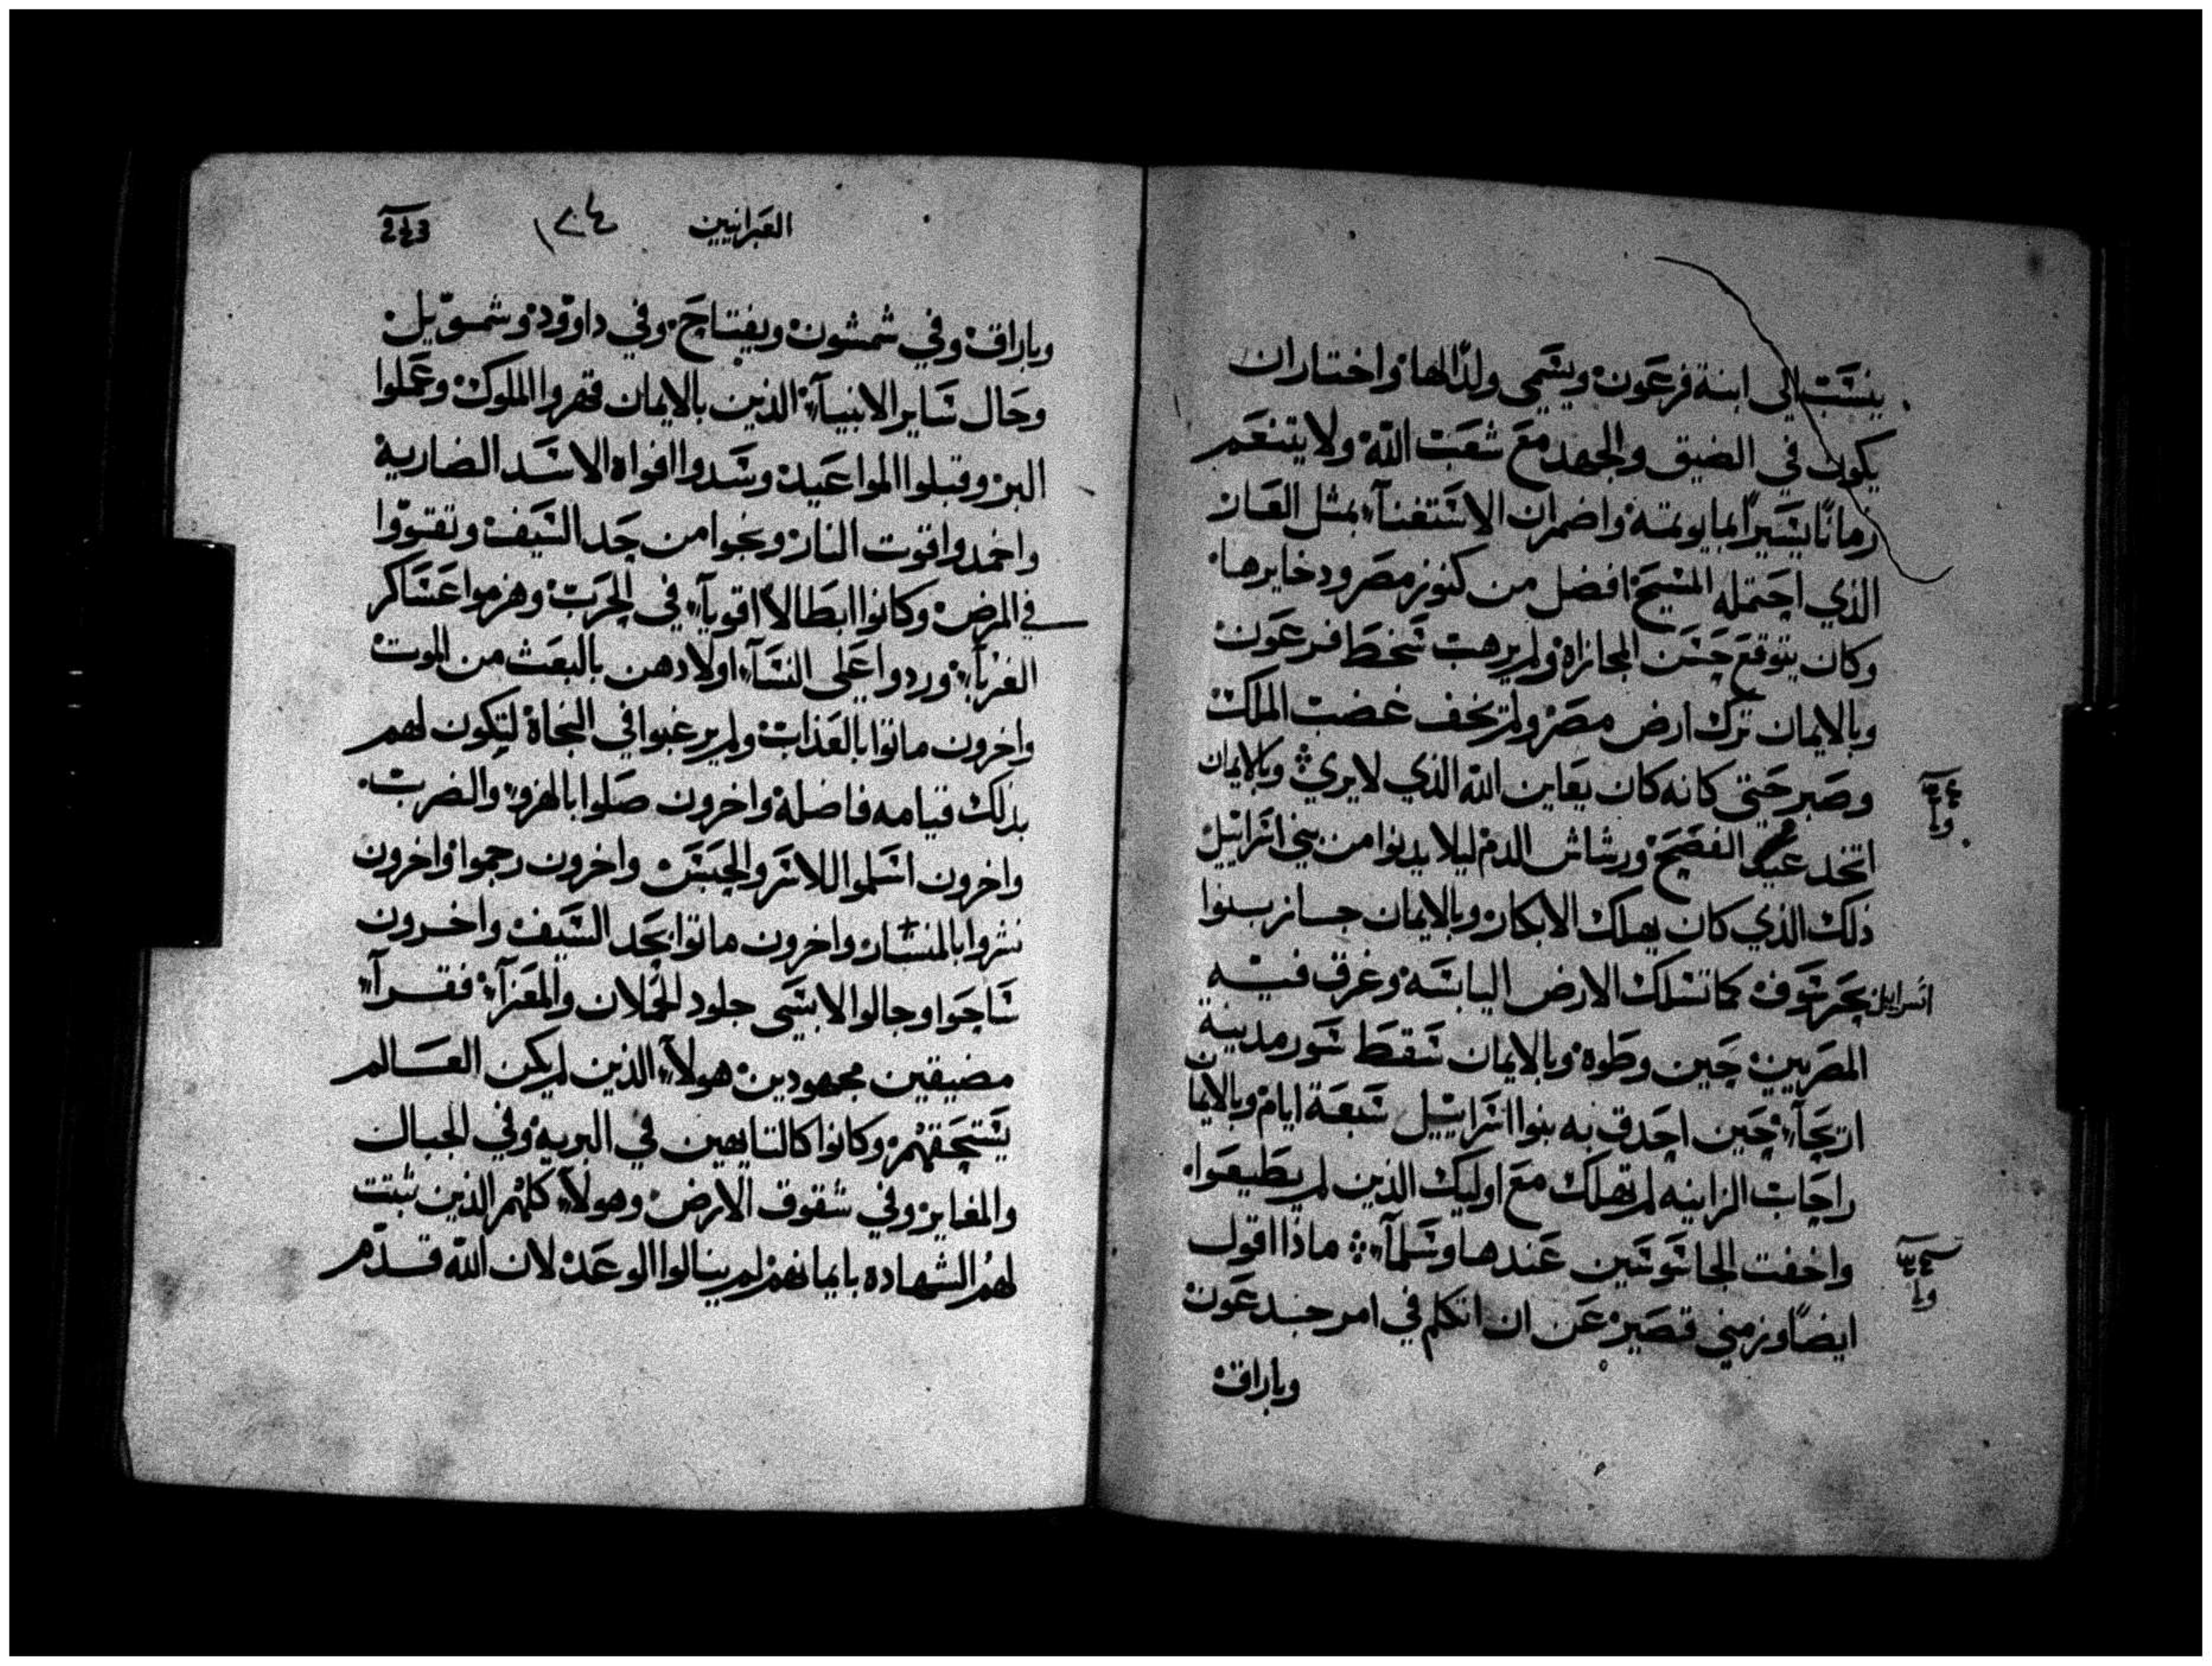 ينسب الي ابنة فرعون ويسمي ولدًا لها واختار ان
يكون في الضيق والجهد مع شعب الله ولا يتنعم
زمانًا يسيرًا بما يوثمه واضمر ان الاستغناء بمثل العار
الذي احتمله المسيح افضل من كنوز مصر ودخايرها
وكان يتوقع حسن المجازاه ولم يرهب سخط فرعون
وبالايمان ترك ارض مصر ولم يخف غضب الملك
وصبر حتي كانه كان يعاين الله الذي لا يري وبالايمان
اتخد عيد الفصح ورشاش الدم ليلا يدنوا من بني اسراييل
ذلك الذي كان يهلك الابكار وبالايمان جاز بنوا
اسراييل بحر سوف كما تسلك الارض اليابسه وغرق فيه
المصريين حين وطوه وبالايمان سقط سور مدينة
اريحآء حين احدق به بنوا اسراييل سبعة ايام وبالايمان
راحاب الزانيه لم تهلك مع اوليك الذين لم يطيعوا
واخفت الجاسوسين عندها وسلمآء ماذا اقول
ايضًا وزمني قصير عن ان اتكلم في امر جدعون
وباراق
العبرانيين
وباراق وفي شمشون ويفتاح وفي داوود وشمويل
وحال ساير الانبيآء الذين بالايمان قهروا الملوك وعملوا
البر وقبلوا المواعيد وسدوا افواه الاسد الضاريه
واخمدوا قوت النار ونجوا من حد السيف وتقووا
في المرض وكانوا ابطالا اقويآء في الحرب وهزموا عساكر
الغربآء وردوا علي النسآء اولادهن بالبعث من الموت
واخرون ماتوا بالعذاب ولم يرغبوا في النجاة ليكون لهم
بذلك قيامه فاضلة واخرون صلوا بالهزو والضرب
واخرون اسلموا للاسر والحبس واخرون رجموا واخرون
نشروا بالمنشار واخرون ماتوا بحد السيف واخرون
ساحوا وجالوا لابسي جلود الحملان والمعزآء فقرآء
مضيقين مجهودين هولآء الذين لم يكن العالم
يستحقهم وكانوا كالتايهين في البريه وفي الجبال
والمغاير وفي شقوق الارض وهولآء كلهم الذين ثبتت
لهم الشهاده بايمانهم لم ينالوا الوعد لان الله قدم